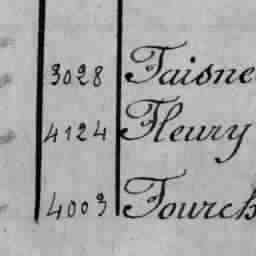 3028 Faisne
4124 Fleury
4003 Fourch